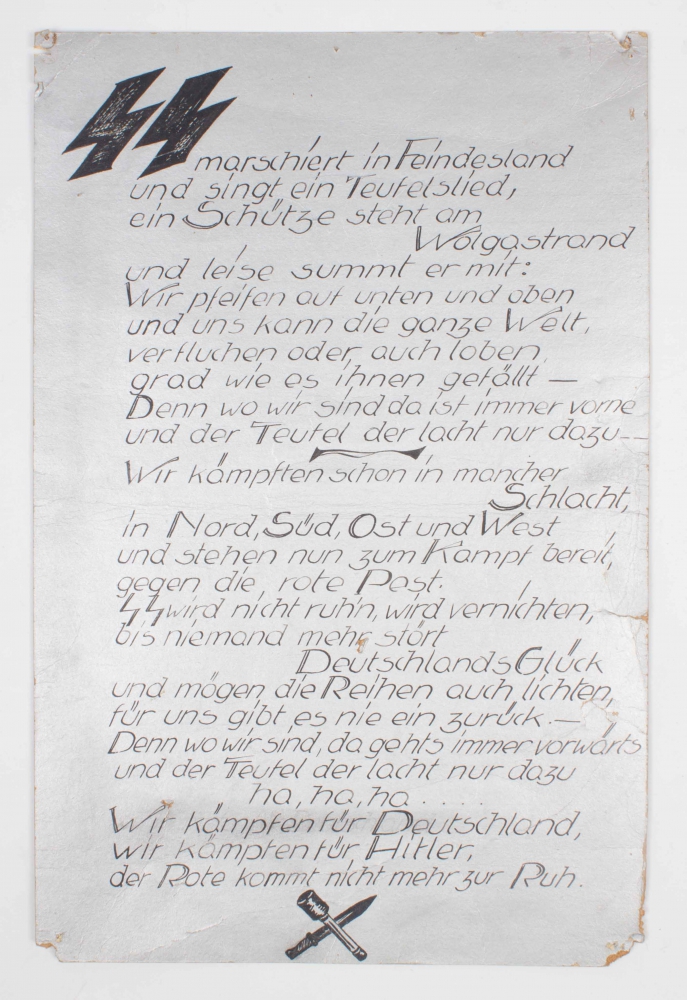 SS
marschiert in Feindesland
und singt ein Teufelslied,
ein Schütze steht am
Wolgastrand
und leise summt er mit:
Wir pfeifen auf unten und oben
und uns kann die ganze Welt,
verfluchen oder auch loben,
grad wie es ihnen gefällt —
Denn wo wir sind da ist immer vorne
und der Teufel der lacht nur dazu--
Wir kämpften schon in mancher
Schlacht,
in Nord, Süd, Ost und West
und stehen nun zum Kampf bereit,
gegen die rote Pest.
SS wird nicht ruh'n, wird vernichten,
bis niemand mehr stört
Deutschlands Glück
und mögen die Reihen auch lichten,
für uns gibt es nie ein zurück. —
Denn wo wir sind, da gehts immer vorwärts
und der Teufel der lacht nur dazu
ha, ha, ha . . . . .
Wir kämpfen für Deutschland,
wir kämpfen für Hitler,
der Rote kommt nicht mehr zur Ruh.